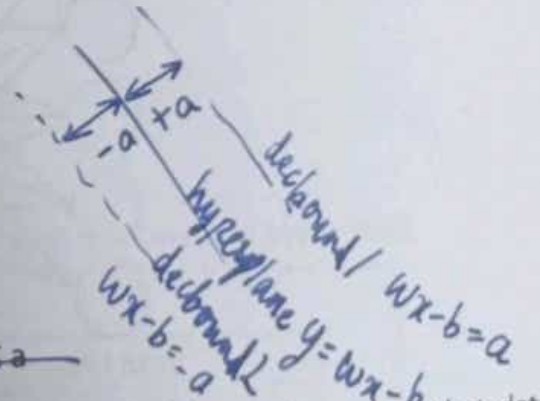 +a
-a
decbound1 wx-b=a
hyperplane y=wx-b
decbound2
wx-b=-a
a